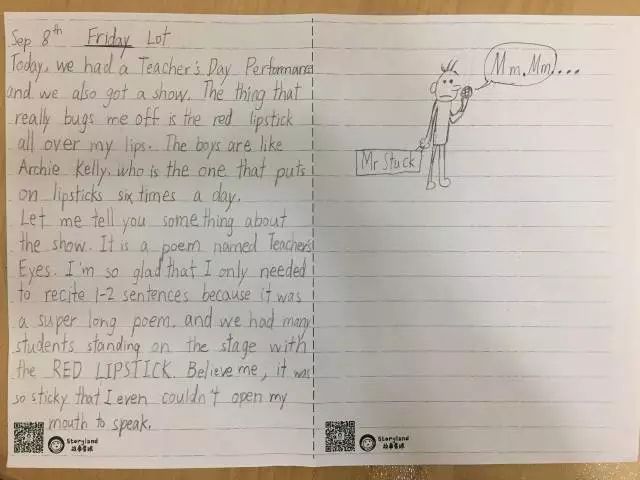 Sep 8th Friday Lot
Today, we had a Teacher's Day Performance
and we also got a show. The thing that
really bugs me off is the red lipstick
all over my lips. The boys are like
Archie Kelly, who is the one that puts
on lipsticks six times a day.
Let me tell you something about
the show. It is a poem named Teachers
Eyes. I'm so glad that I only needed
to recite 1-2 sentences because it was
a super long poem. and we had many
students standing on the stage with
the RED LIPSTICK. Believe me, it was
so sticky that I even couldn't open my
mouth to speak.
Storyland
故事星球
Mm. Mm...
Mr Stuck
Storyland
故事星球